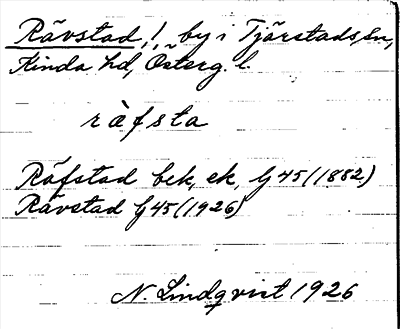 Rävstad,! by i Tjärstads sn,
Kinda hd, Österg. l.
ràfsta
Räfstad bek, ek, Gj 45 (1882)
Rävstad Gj 45 (1926)
N. Lindqvist 1926